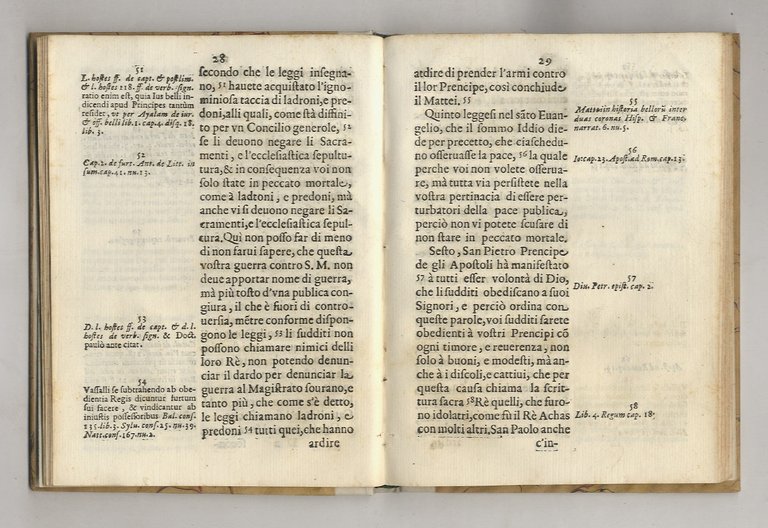 28
51
L. hostes ff. de capt. & postlim.
& l. hostes 118. ff. de verb. sign.
ratio enim est, quia Ius belli in
dicendi apud Principes tantùm
residet, vt per Ayalam de iur.
& off. belli lib. 1. cap. 4. disq. 18.
lib. 3.
52
Cap. 2. de furt. Ant. de Litt. in
sum. cap. 41. nu. 13.
53
D. l. hostes ff. de capt. & d. l.
hostes de verb. sign. & Doct.
paulò ante citat.
54
Vassalli se subtrahendo ab obe-
dientia Regis dicuntur furtum
sui facere, & vindicantur ab
iniustis possessoribus Bal. cons.
235. lib. 3. Sylu. cons. 25. nu. 39.
Natt. cons. 167. nu. 2.
secondo che le leggi insegna-
no, 51 hauete acquistato l'igno-
miniosa taccia di ladroni, e pre-
doni, alli quali, come stà diffini-
to per vn Concilio generole, 52
se li deuono negare li Sacra-
menti, e l'ecclesiastica sepultu-
tura, & in consequenza voi non
solo state in peccato mortale,
come à ladtoni, e predoni, mà
anche vi si deuono negare li Sa-
cramenti, e l'ecclesiastica sepul-
tura. Quì non posso far di meno
di non farui sapere, che questa
vostra guerra contro S. M. non
deue apportar nome di guerra,
mà più tosto d'vna publica con-
giura, il che è fuori di contro-
uersia, mẽtre conforme dispon-
gono le leggi, 53 li sudditi non
possono chiamare nimici delli
loro Rè, non potendo denun-
ciar il dardo per denunciar la
guerra al Magistrato sourano, e
tanto più, che come s'è detto,
le leggi chiamano ladroni, e
predoni 54 tutti quei, che hanno
ardire
29
atdire di prender l'armi contro
il lor Prencipe, così conchiude
il Mattei. 55
Quinto leggesi nel sãto Euan-
gelio, che il sommo Iddio die-
de per precetto, che ciaschedu-
no osseruasse la pace, 56 la quale
perche voi non volete osserua-
re, mà tutta via persistete nella
vostra pertinacia di essere per-
turbatori della pace publica,
perciò non vi potete scusare di
non stare in peccato mortale.
Sesto, San Pietro Prencipe
de gli Apostoli hà manifestato
57 à tutti esser volontà di Dio,
che li sudditi obediscano a suoi
Signori, e perciò ordina con
queste parole, voi sudditi sarete
obedienti à vostri Prencipi cõ
ogni timore, e reuerenza, non
solo à buoni, e modesti, mà an-
che à i discoli, e cattiui, che per
questa causa chiama la scrit-
tura sacra 58 Rè quelli, che furo-
no idolatri, come fu il Rè Achas
con molti altri. San Paolo anche
c'in-
55
Matteo in historia bellorũ inter
duas coronas Hisp. & Franc.
narrat. 6. nu. 5.
56
Io: cap. 23. Apost. ad Rom. cap. 13.
57
Diu. Petr. epist. cap. 2.
58
Lib. 4. Regum cap. 18.